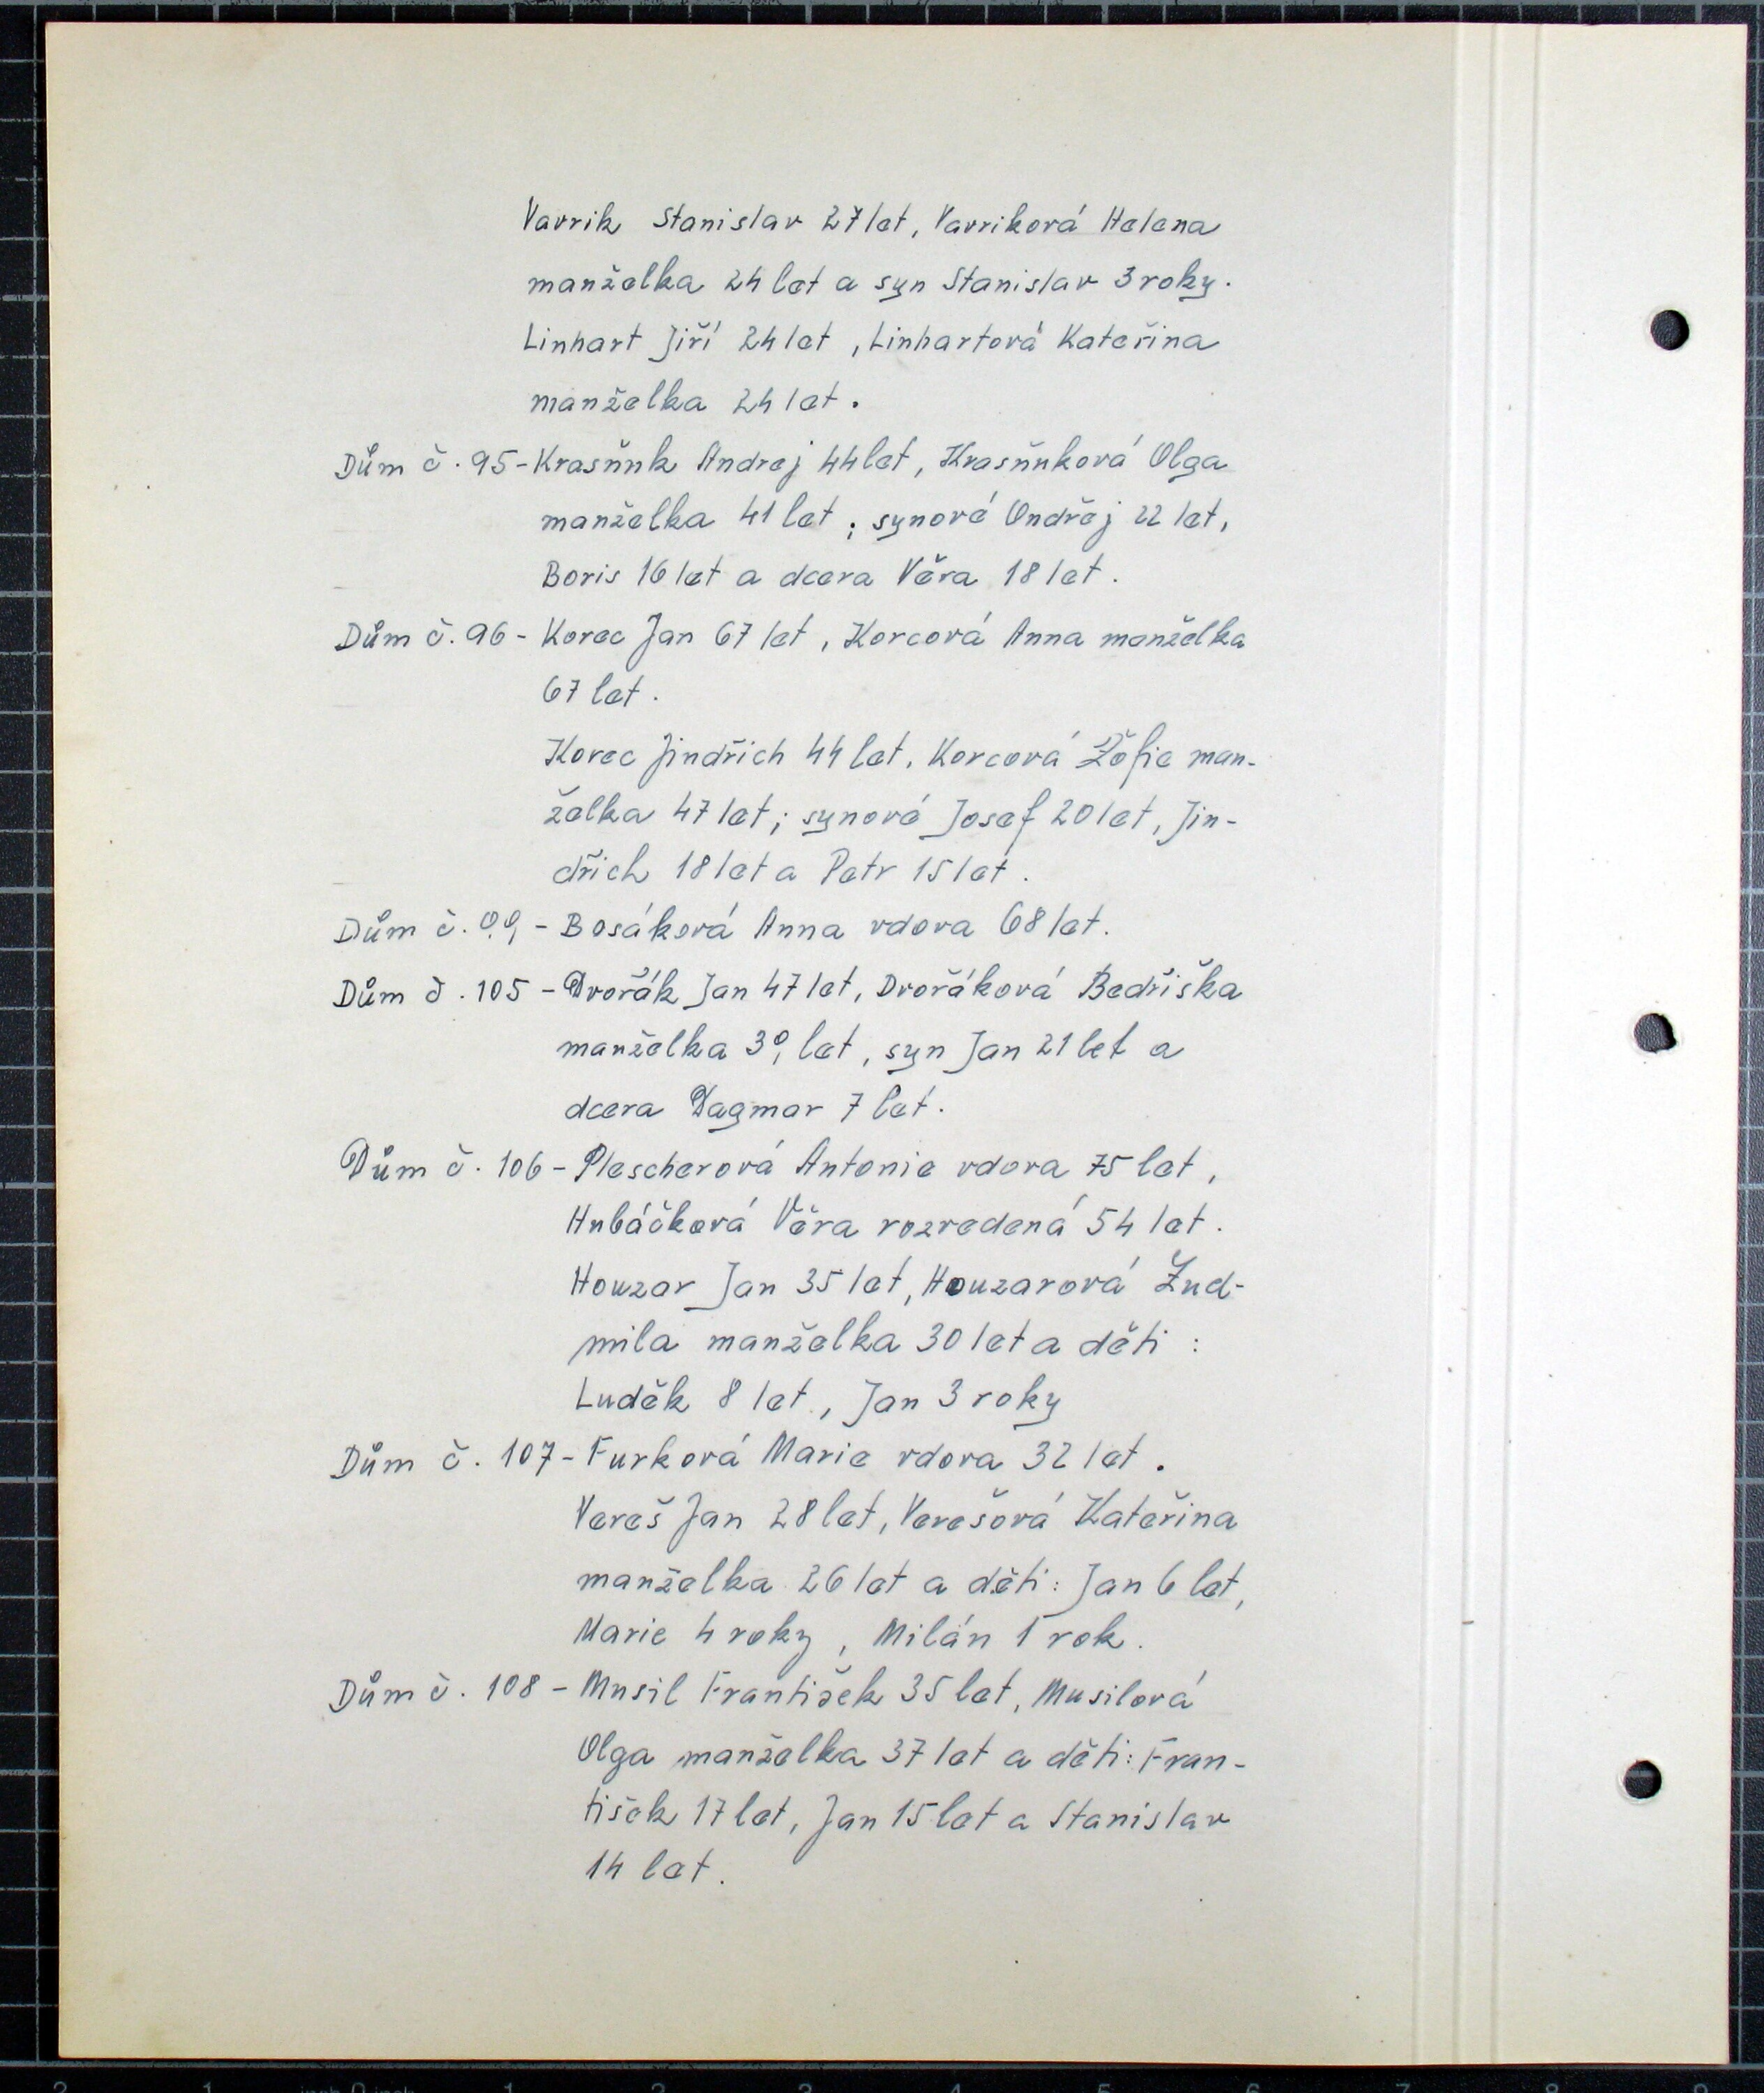 Vavrik Stanislav 27 let, Vavriková Helena
manželka 24 let a syn Stanislav 3 roky.
Linhart Jiří 24 let, Linhartová Kateřina
manželka 24 let.
Dům č. 95 - Krasňuk Andrej 44 let, Krasňuková Olga
manželka 41 let; synové Ondřej 22 let,
Boris 16 let a dcera Věra 18 let.
Dům č. 96 - Korec Jan 67 let, Korcová Anna manželka
67 let.
Korec Jindřich 44 let, Korcová Žofie man-
želka 47 let; synové Josef 20 let, Jin-
dřich 18 let a Petr 15 let.
Dům č. 99 - Bosáková Anna vdova 68 let.
Dům č. 105 - Dvořák Jan 47 let, Dvořáková Bedřiška
manželka 39 let, syn Jan 21 let a
dcera Dagmar 7 let.
Dům č. 106 - Plescherová Antonie vdova 75 let,
Hubáčková Věra rozvedená 54 let.
Houzar Jan 35 let, Houzarová Lud-
mila manželka 30 let a děti:
Luděk 8 let, Jan 3 roky
Dům č. 107 - Furková Marie vdova 32 let.
Vereš Jan 28 let, Verešová Kateřina
manželka 26 let a děti: Jan 6 let,
Marie 4 roky, Milán 1 rok.
Dům č. 108 - Musil František 35 let, Musilová
Olga manželka 37 let a děti: Fran-
tišek 17 let, Jan 15 let a Stanislav
14 let.